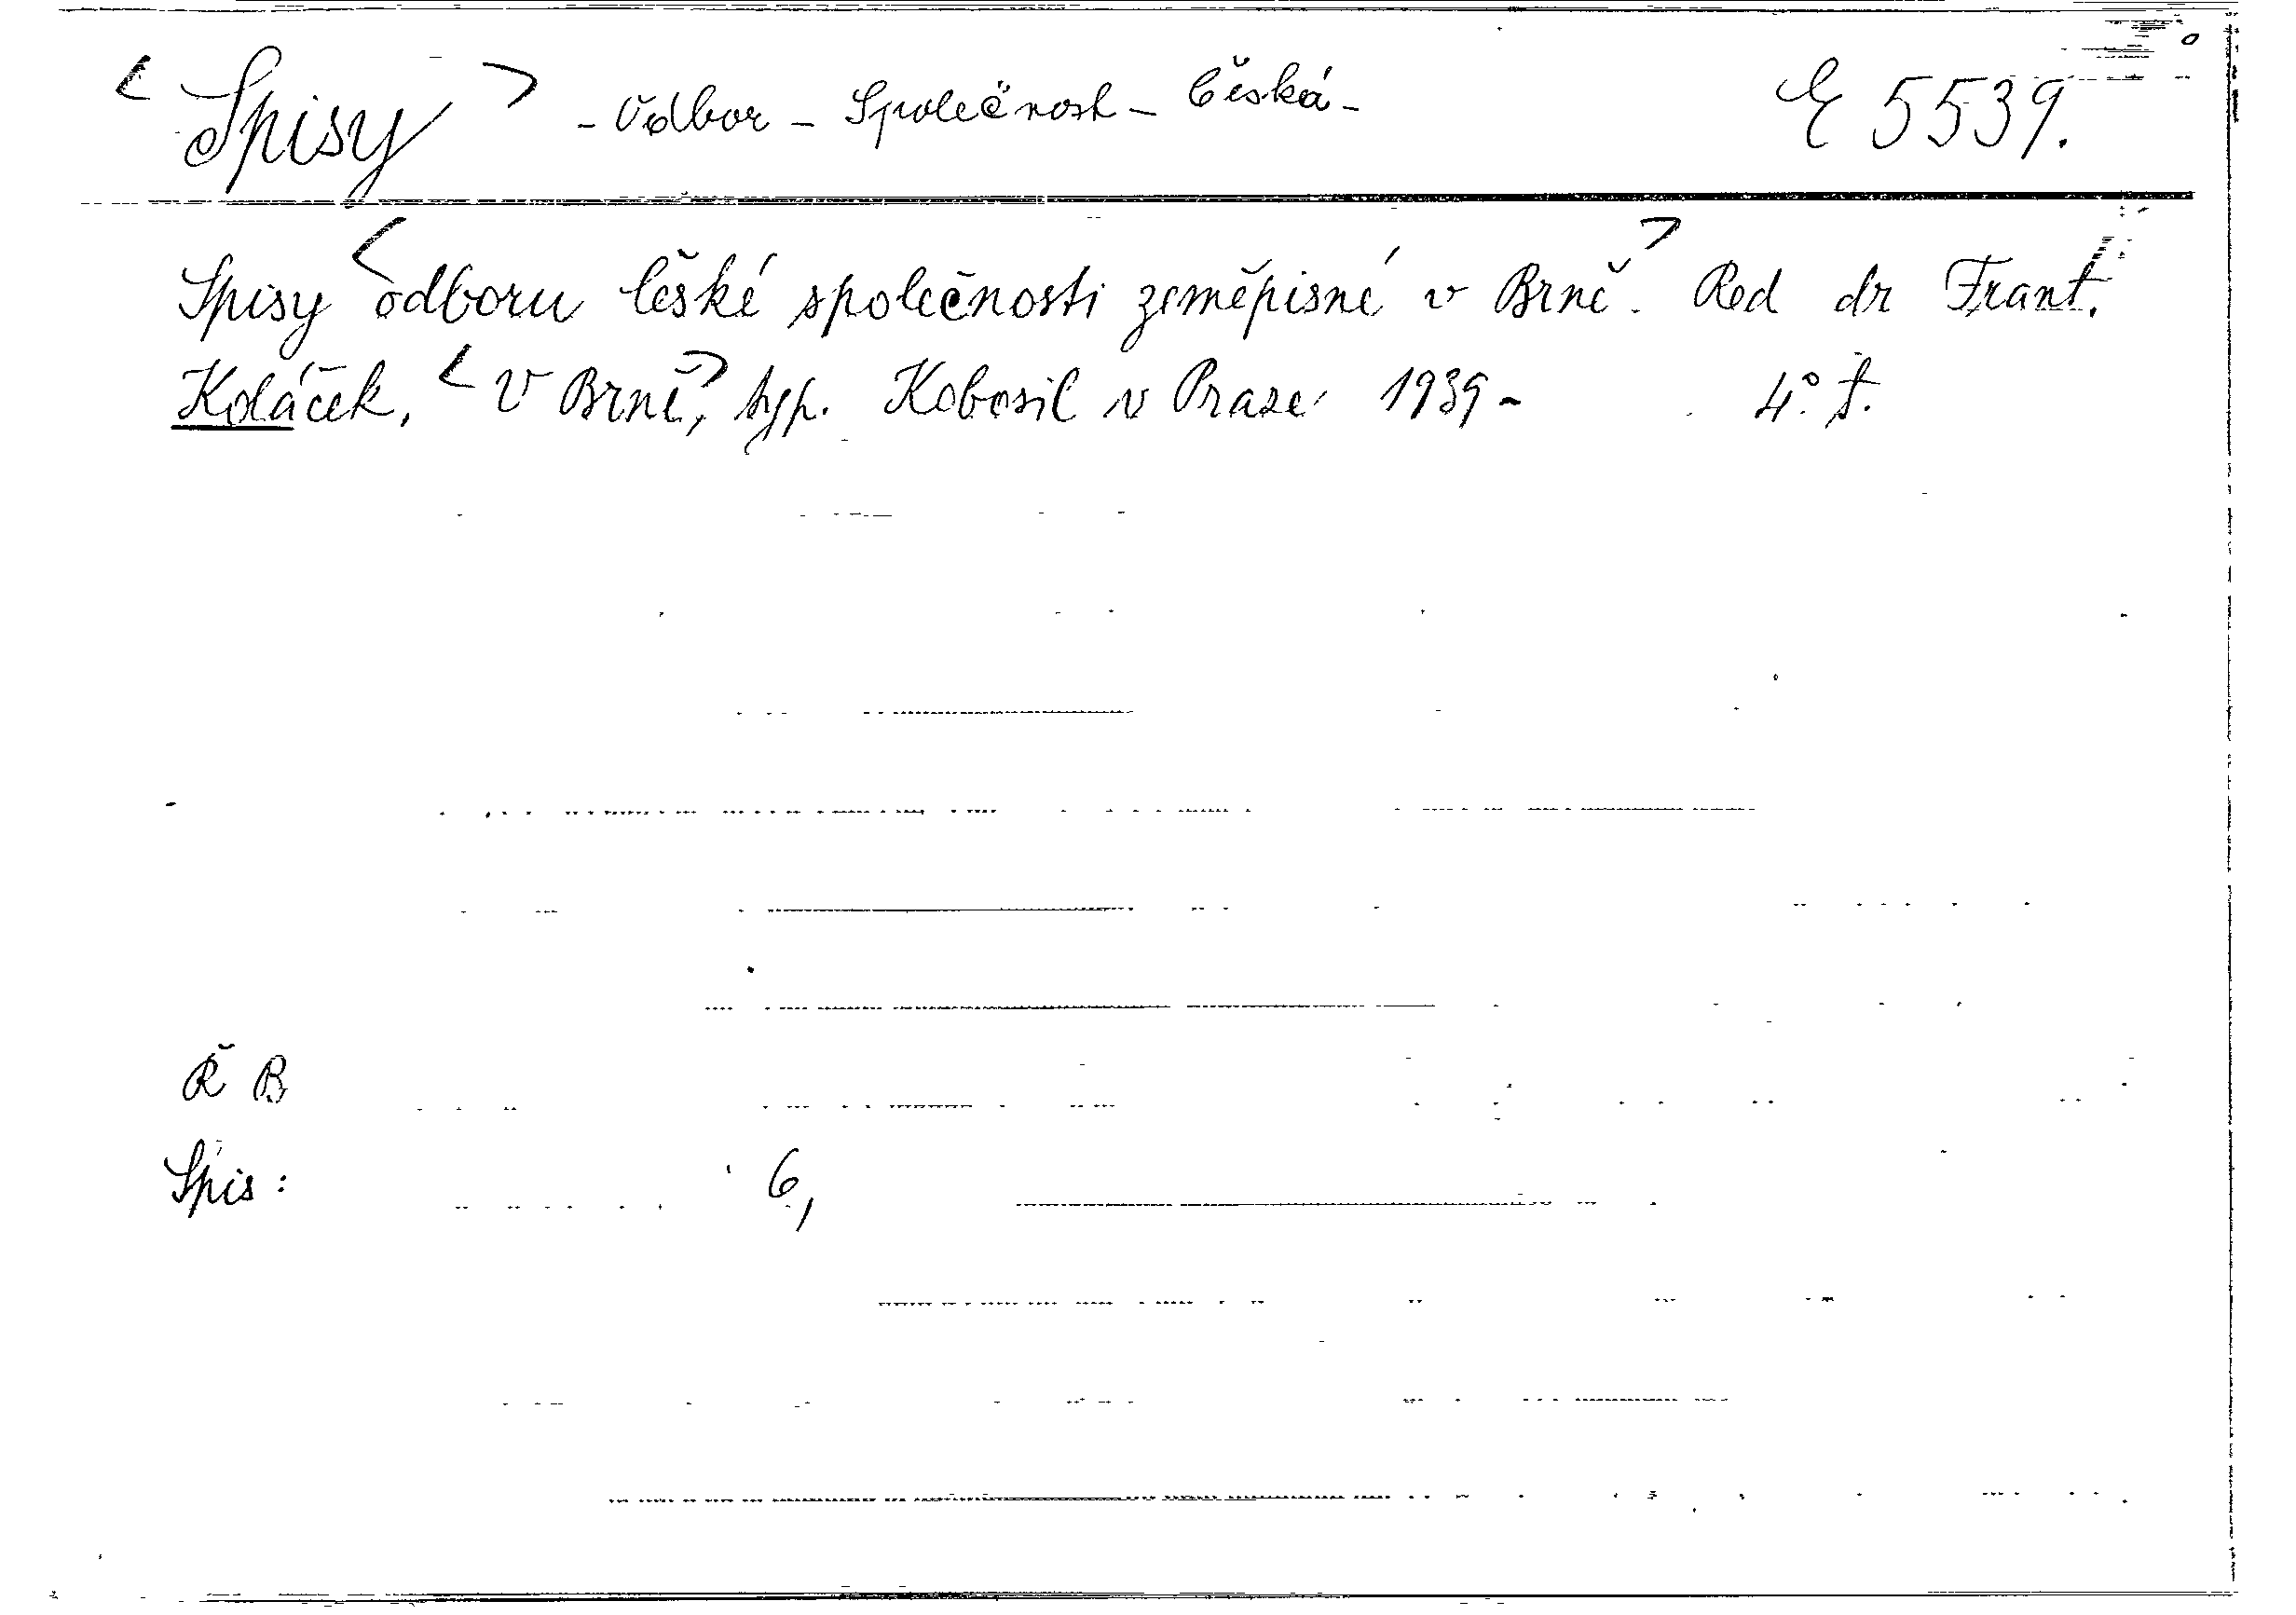 < Spisy > - Odbor - Společnost - Česká - E 5539.
Spisy < odboru české společnosti zeměpisné v Brně. > Red dr Frant.
Koláček, < V Brně, > typ. Kobosil v Praze 1939- 4° ť.
Ř B
Spis: 6,